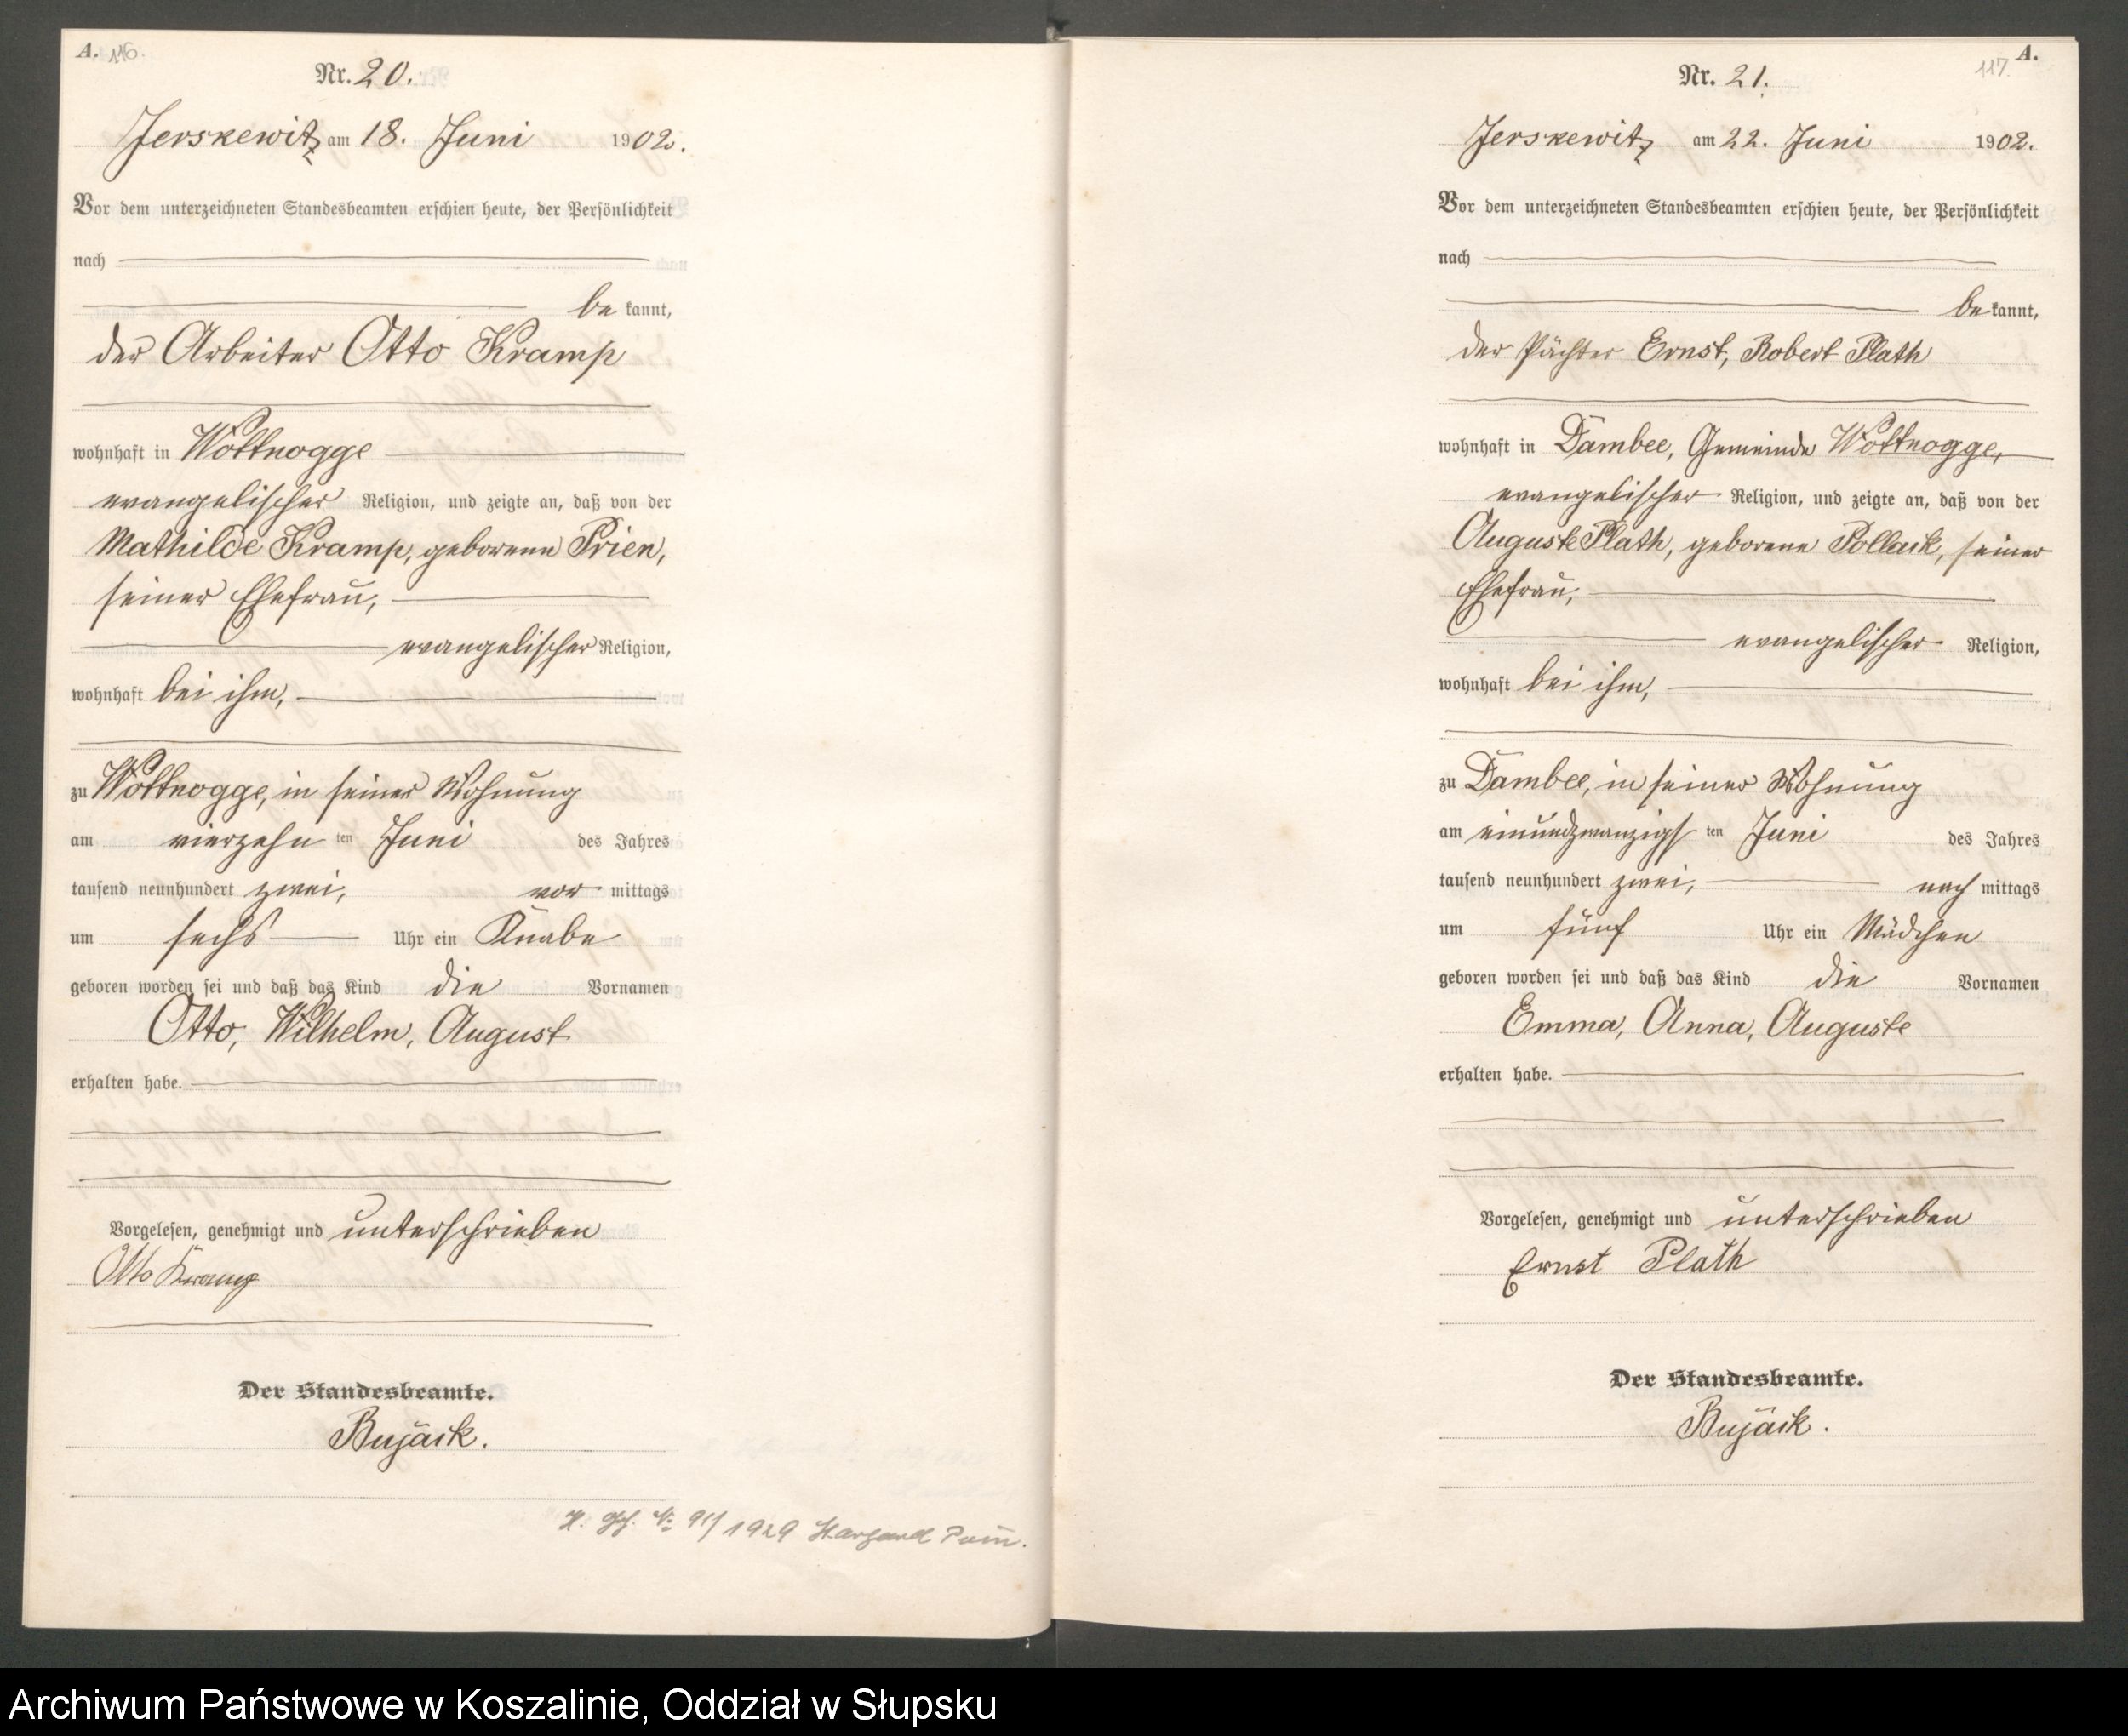 A. 116.
Nr. 20.
Jerskewitz am 18. Juni 1902.
Vor dem unterzeichneten Standesbeamten erschien heute, der Persönlichkeit
nach
be kannt,
der Arbeiter Otto Kramp
wohnhaft in Wottnogge
evangelischer Religion, und zeigte an, daß von der
Mathilde Kramp, geborenen Prien,
seiner Ehefrau,
evangelischer Religion,
wohnhaft bei ihm,
zu Wottnogge, in seiner Wohnung
am vierzehn ten Juni des Jahres
tausend neunhundert zwei, vor mittags
um sechs Uhr ein Knabe
geboren worden sei und daß das Kind die Vornamen
Otto, Wilhelm, August
erhalten habe.
Vorgelesen, genehmigt und unterschrieben
Otto Kramp
Der Standesbeamte.
Bujack.
№ 911/1929 Stargard Pom.
A.
117.
Nr. 21.
Jerskewitz am 22. Juni 1902.
Vor dem unterzeichneten Standesbeamten erschien heute, der Persönlichkeit
nach
be kannt,
der Pächter Ernst, Robert Plath
wohnhaft in Dambee, Gemeinde Wottnogge,
evangelischer Religion, und zeigte an, daß von der
Auguste Plath, geborene Pollack, seiner
Ehefrau,
evangelischer Religion,
wohnhaft bei ihm,
zu Dambee, in seiner Wohnung
am einundzwanzigs ten Juni des Jahres
tausend neunhundert zwei, nach mittags
um fünf Uhr ein Mädchen
geboren worden sei und daß das Kind die Vornamen
Emma, Anna, Auguste
erhalten habe.
Vorgelesen, genehmigt und unterschrieben
Ernst Plath
Der Standesbeamte.
Bujack.
Archiwum Państwowe w Koszalinie, Oddział w Słupsku